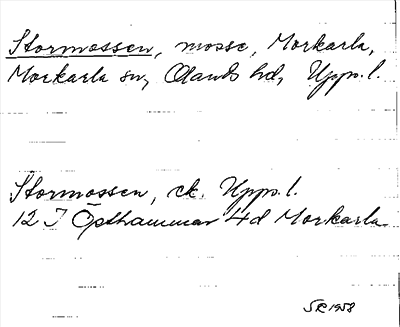 Stormossen, mosse, Morkarla,
Morkarla sn, Olands hd, Upps. l.
Stormossen, ek. Upps. l.
12 I Östhammar 4d Morkarla
SR 1958